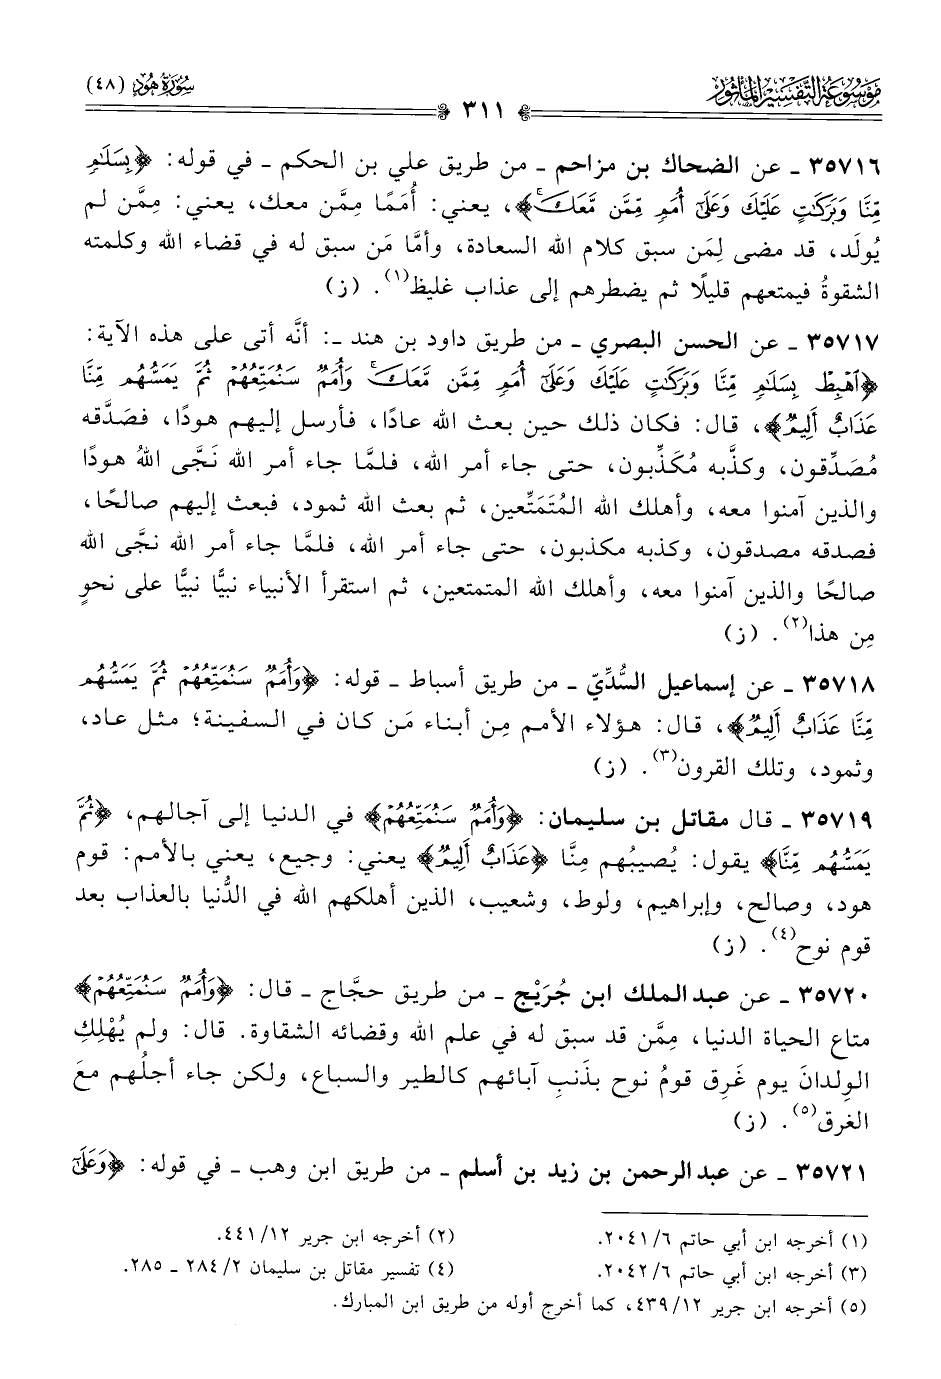 مَوْسُوعَةُ التَّفْسِيرِ المَأْثُورِ
سُورَةُ هُودٍ (٤٨)
٣١١
٣٥٧١٦ ـ عن الضحاك بن مزاحم ـ من طريق علي بن الحكم ـ في قوله: ﴿بِسَلَٰمٖ
مِّنَّا وَبَرَكَٰتٍ عَلَيۡكَ وَعَلَىٰٓ أُمَمٖ مِّمَّن مَّعَكَۚ﴾، يعني: أُمَمًا مِمَّن معك، يعني: مِمَّن لم
يُولَد، قد مضى لِمَن سبق كلام الله السعادة، وأمَّا مَن سبق له في قضاء الله وكلمته
الشقوةُ فيمتعهم قليلًا ثم يضطرهم إلى عذاب غليظ(١). (ز)
٣٥٧١٧ ـ عن الحسن البصري ـ من طريق داود بن هند ـ: أنَّه أتى على هذه الآية:
﴿ٱهۡبِطۡ بِسَلَٰمٖ مِّنَّا وَبَرَكَٰتٍ عَلَيۡكَ وَعَلَىٰٓ أُمَمٖ مِّمَّن مَّعَكَۚ وَأُمَمٞ سَنُمَتِّعُهُمۡ ثُمَّ يَمَسُّهُم مِّنَّا
عَذَابٌ أَلِيمٞ﴾، قال: فكان ذلك حين بعث الله عادًا، فأرسل إليهم هودًا، فصَدَّقه
مُصَدِّقون، وكذَّبه مُكَذِّبون، حتى جاء أمر الله، فلمَّا جاء أمر الله نَجَّى اللهُ هودًا
والذين آمنوا معه، وأهلك الله المُتَمَتِّعين، ثم بعث الله ثمود، فبعث إليهم صالحًا،
فصدقه مصدقون، وكذبه مكذبون، حتى جاء أمر الله، فلمَّا جاء أمر الله نجَّى الله
صالحًا والذين آمنوا معه، وأهلك الله المتمتعين، ثم استقرأ الأنبياء نبيًّا نبيًّا على نحوٍ
مِن هذا(٢). (ز)
٣٥٧١٨ ـ عن إسماعيل السُّدِّيّ ـ من طريق أسباط ـ قوله: ﴿وَأُمَمٞ سَنُمَتِّعُهُمۡ ثُمَّ يَمَسُّهُم
مِّنَّا عَذَابٌ أَلِيمٞ﴾، قال: هؤلاء الأمم مِن أبناء مَن كان في السفينة؛ مثل عاد،
وثمود، وتلك القرون(٣). (ز)
٣٥٧١٩ ـ قال مقاتل بن سليمان: ﴿وَأُمَمٞ سَنُمَتِّعُهُمۡ﴾ في الدنيا إلى آجالهم، ﴿ثُمَّ
يَمَسُّهُم مِّنَّا﴾ يقول: يُصيبُهم مِنَّا ﴿عَذَابٌ أَلِيمٞ﴾ يعني: وجيع، يعني بالأمم: قوم
هود، وصالح، وإبراهيم، ولوط، وشعيب، الذين أهلكهم الله في الدُّنيا بالعذاب بعد
قوم نوح(٤). (ز)
٣٥٧٢٠ ـ عن عبد الملك ابن جُرَيْج ـ من طريق حجَّاج ـ قال: ﴿وَأُمَمٞ سَنُمَتِّعُهُمۡ﴾
متاع الحياة الدنيا، مِمَّن قد سبق له في علم الله وقضائه الشقاوة. قال: ولم يُهْلِكِ
الوِلدانَ يوم غَرِق قومُ نوح بذَنبِ آبائهم كالطير والسباع، ولكن جاء أجلُهم معَ
الغرق(٥). (ز)
٣٥٧٢١ ـ عن عبد الرحمن بن زيد بن أسلم ـ من طريق ابن وهب ـ في قوله: ﴿وَعَلَىٰٓ
(١) أخرجه ابن أبي حاتم ٦/ ٢٠٤١.
(٢) أخرجه ابن جرير ١٢/ ٤٤١.
(٣) أخرجه ابن أبي حاتم ٦/ ٢٠٤٢.
(٤) تفسير مقاتل بن سليمان ٢/ ٢٨٤ ـ ٢٨٥.
(٥) أخرجه ابن جرير ١٢/ ٤٣٩، كما أخرج أوله من طريق ابن المبارك.